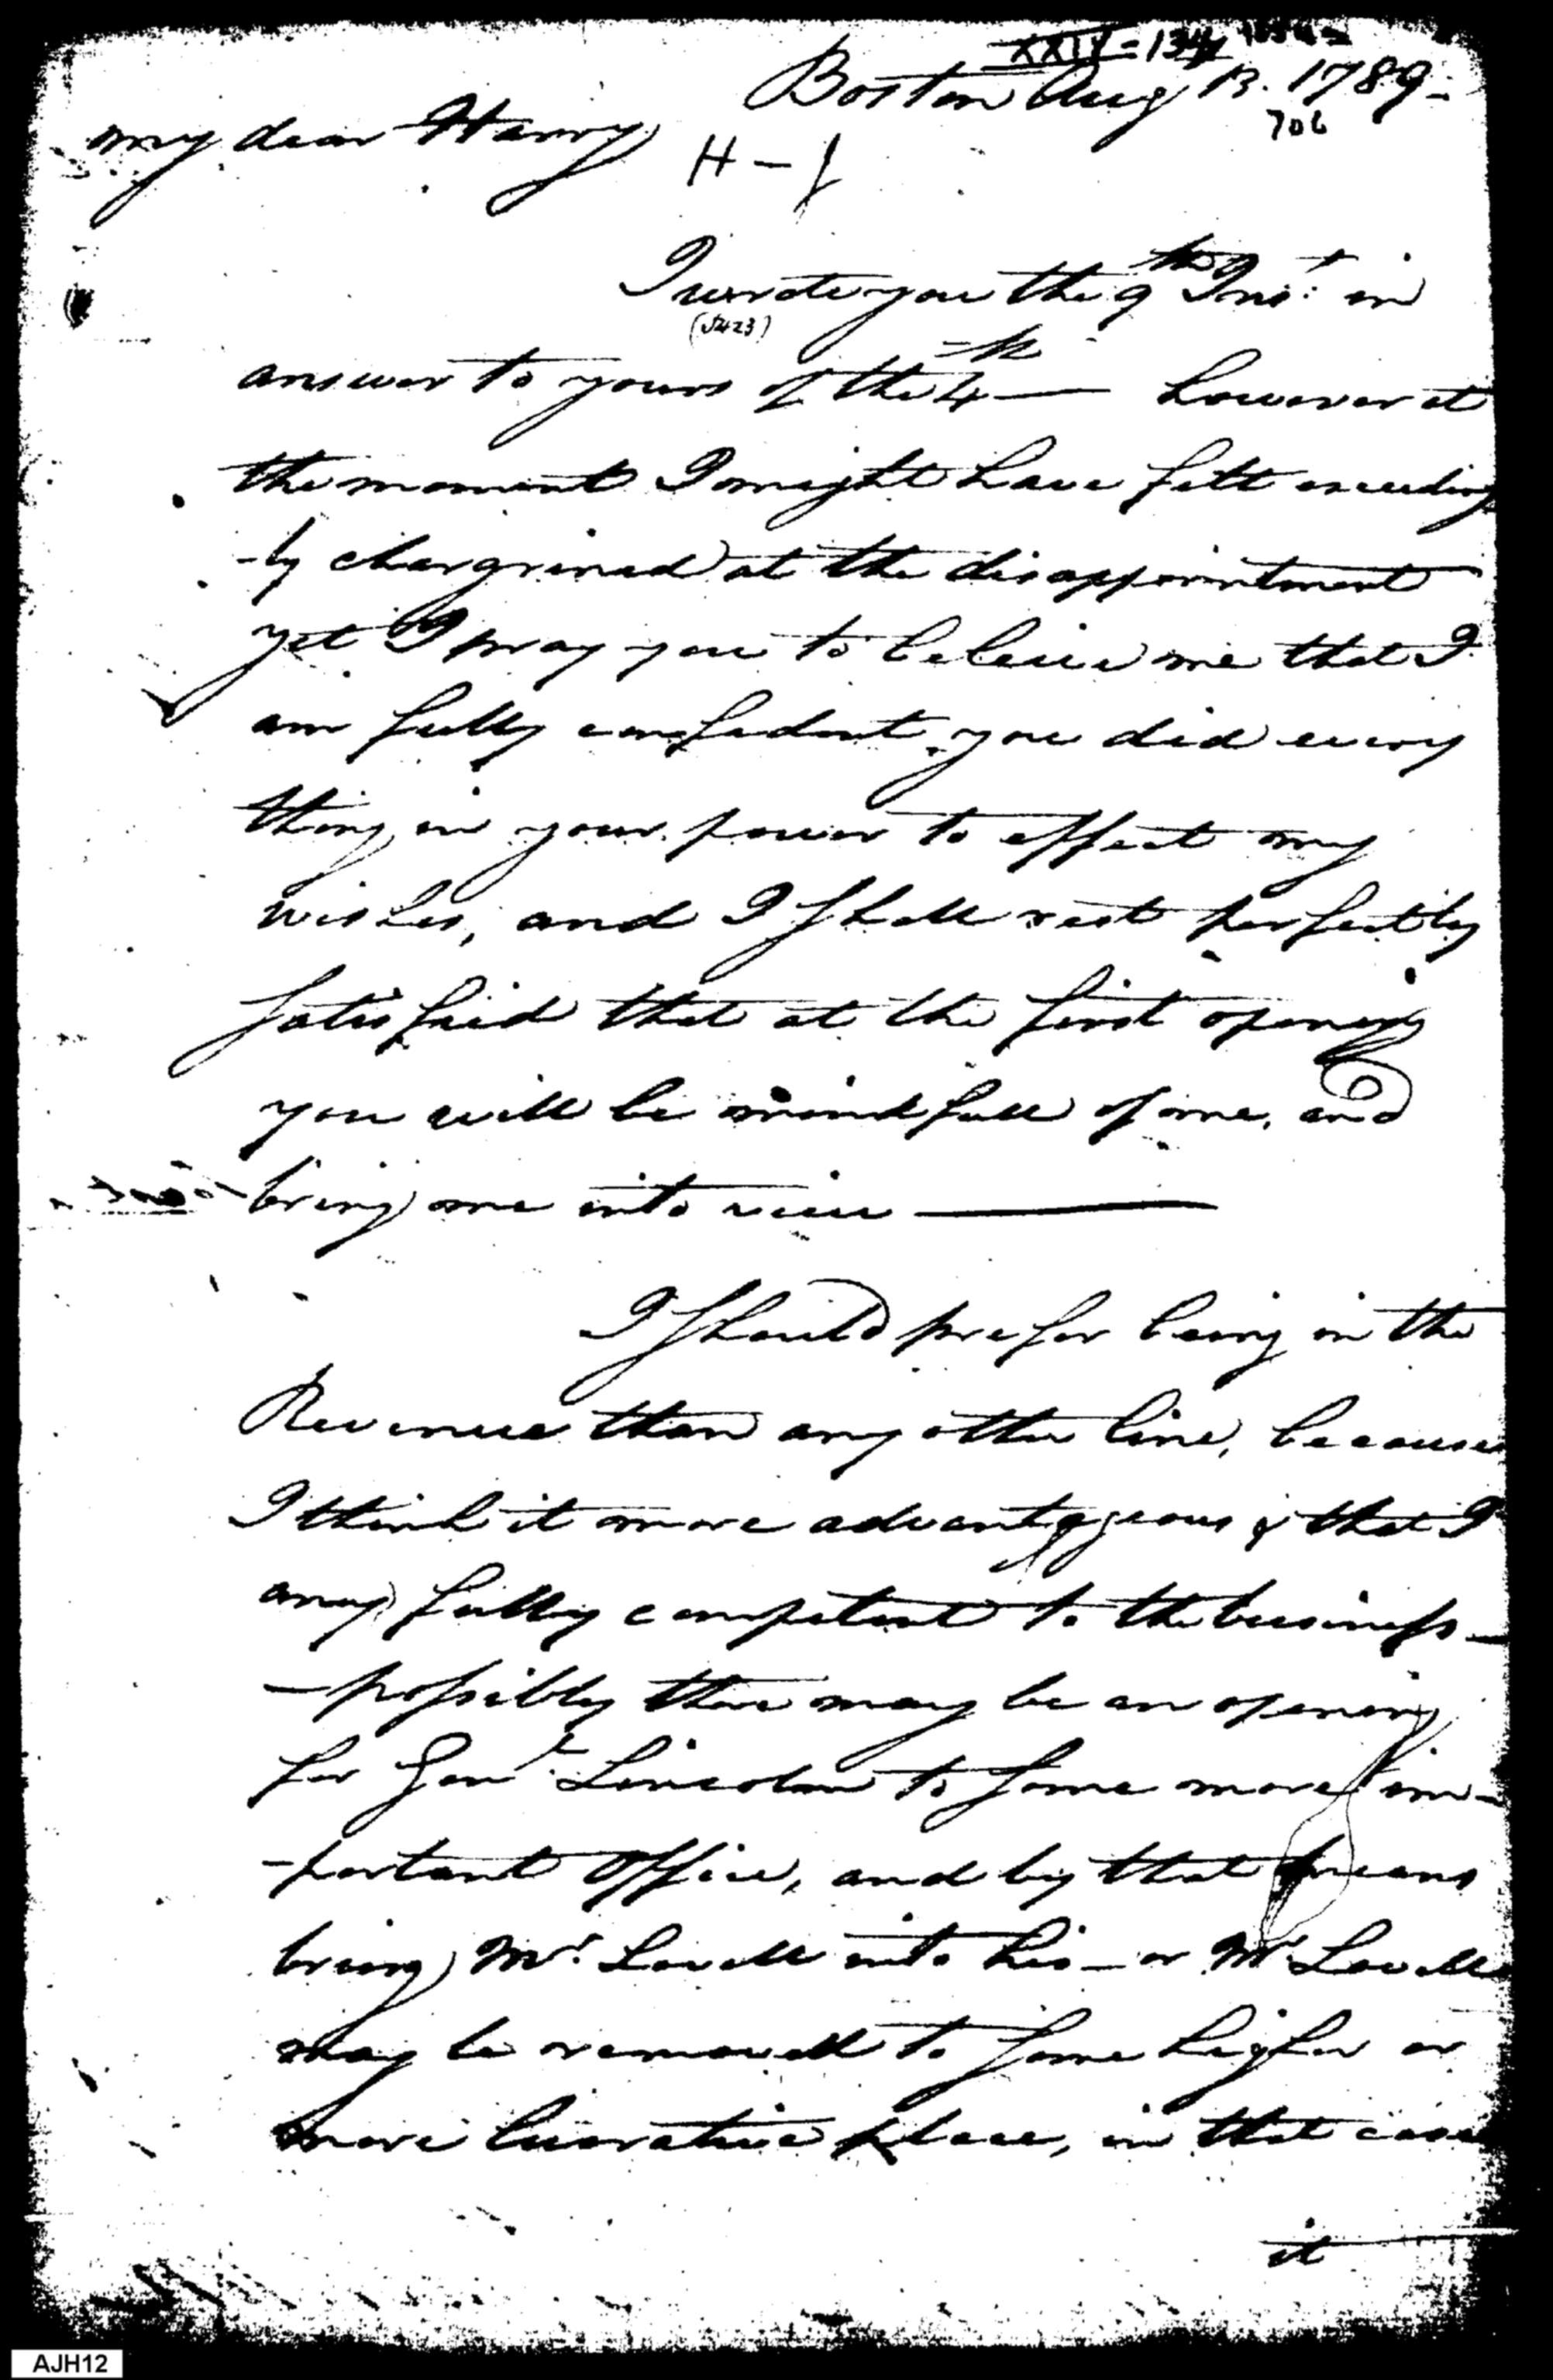 XXIV=134
Boston Aug 13. 1789-
706
my dear Harry
H-J
I wrote you the 9th Inst: in
(5423)
answer to yours of the 4th — however at
the moment I might have felt exceeding
-ly chargrined at the disappointment
yet I pray you to beleive me that I
am fully confident you did every
thing in your power to effect my
wishes, and I shall rest perfectly
satisfied that at the first opening
you will be mindfull of me, and
bring me into view —
I should prefer being in the
Revenue than any other line, because
I think it more advantageous & that I
may fully competent to the business —
- possibly there may be an opening
for Genl. Lincoln to some more im-
-portant Office, and by that means
bring Mr. Lovell into his - or Mr Lovell
may be removed to some higher or
more lucrative place, in that case
it
AJH12